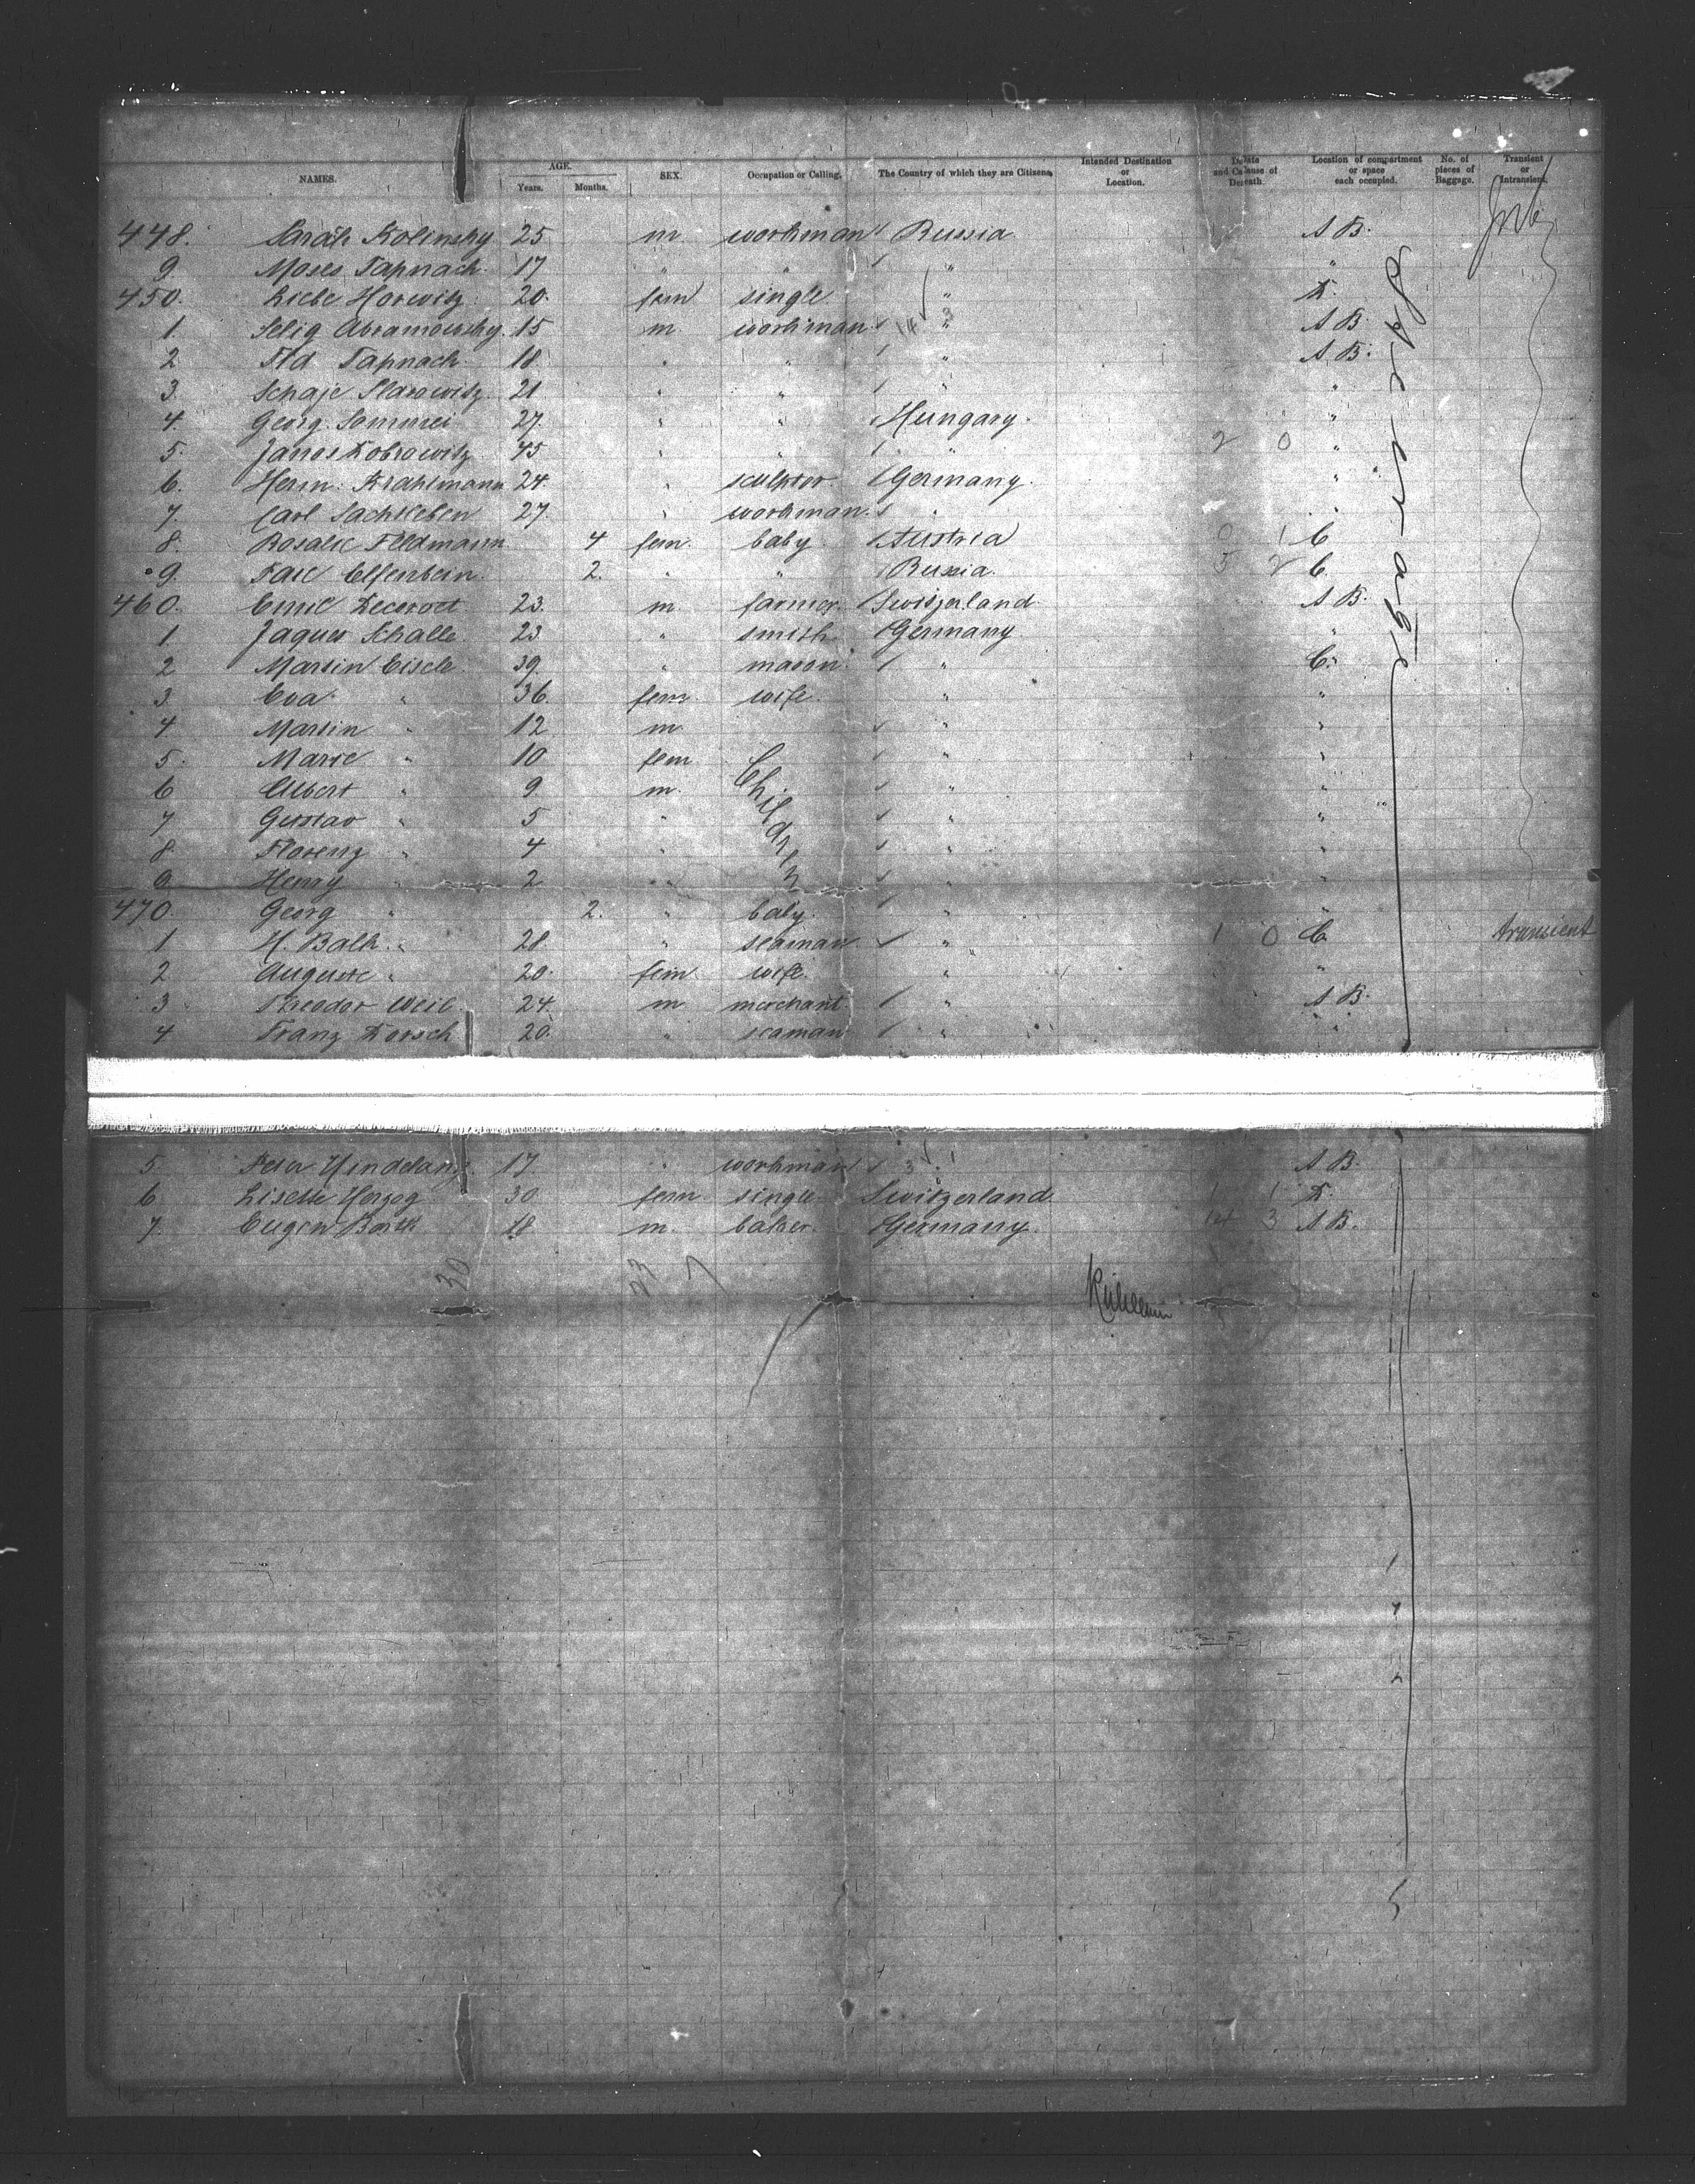 NAMES. AGE. Years. Months. SEX. Occupation or Calling. The Country of which they are Citizens. Intended Destination or Location. Date and Cause of Death. Location of compartment or space each occupied. No. of pieces of Baggage. Transient or Intransient.
448. Sarah Kolinsky 25 m workman Russia A B.
9. Moses Tapnach 17 " " " "
450. Liebe Horwitz 20. fem single " K.
1. Selig Abramowsky. 15 m workman 14 3 " A B.
2. Tapnach 18 " " " A B.
3. Schaje 21 " " " "
4. Georg. 27. " " Hungary. "
5. Janos Kobrowitz 45 " " " 2 0 "
6. Herm. Krahlmann 24. " sculptor Germany. "
7. Carl Sachtleben 27. " workman. " "
8. Rosalie Feldmann 4 fem. baby Austria 0 1 C
9. Elfenbein. 2. " " Russia. 5 2 C.
460. Emil 23. m farmer. Switzerland A B.
1 Jaques Schalle. 23. " smith. Germany "
2 Martin Eisele. 39. " mason " C.
3. Eva " 36. fem wife. " "
4 Martin " 12 m. " "
5. Marie " 10 fem " "
6 Albert " 9 m. Children " "
7 Gustav " 5 " " "
8. Florenz " 4 " " "
9. Henry " 2 " " "
470. Georg " 2. " baby. " "
1 H. Balk 28. " seaman. " 1 0 C transient
2 Auguste " 20. fem wife. " "
3 Theodor Weil. 24. m merchant " A B.
4 Franz Dorsch 20. " seaman " "
5. Peter Hindelang 17. " workman 3 " A B.
6 Lisette Herzog 30 fem single Switzerland 1 1 K.
7. Eugen Barth 18 m. baker. Germany. 14 3 A B.
30 23 7